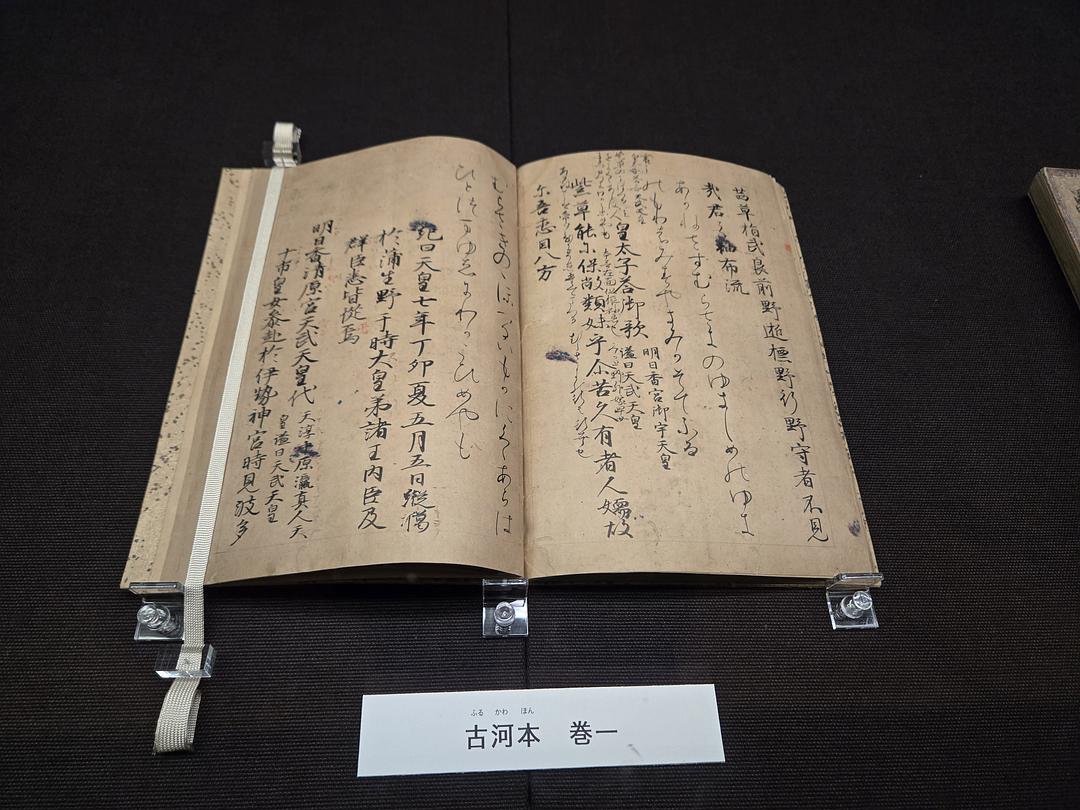 茜草指武良前野逝標野行野守者不見
哉君之袖布流
あかねさすむらさきのゆきしめのゆき
のもりはみすやきみかそてふる
皇太子答御歌 明日香宮御宇天皇
謚曰天武天皇
紫草能尓保尚類妹乎尓苦久有者人嬬故
尓吾恋目八方
むらさきのにほへるいもかにくくあらは
ひとつまゆゑにわれこひめやも
紀曰天皇七年丁卯夏五月五日縦猟
於蒲生野于時大皇弟諸王内臣及
群臣悉皆従焉
明日香清原宮天武天皇代 天渟中原瀛真人天
皇謚曰天武天皇
十市皇女参赴於伊勢神宮時見波多
ふる かわ ほん
古河本 巻一